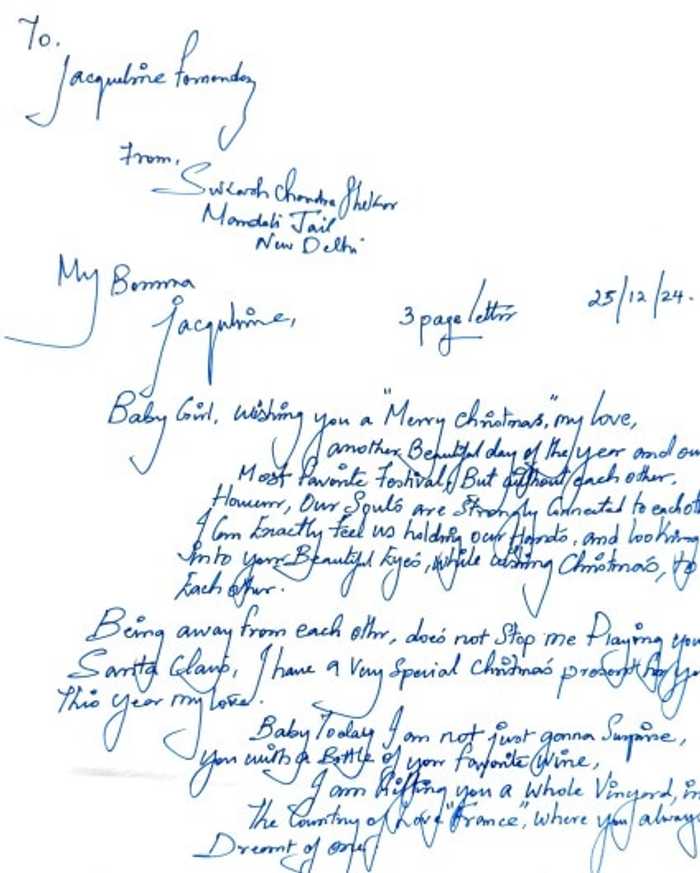 To.
Jacqueline Fernandez
From,
Sukash Chandra Shekar
Mandoli Jail
New Delhi
My Bomma
Jacquline,
3 page letter
25/12/24.
Baby Girl, wishing you a "Merry Christmas," my love,
another Beautiful day of the year and our
Most favorite Festival, But without each other.
However, Our Souls are Strongly Connected to each oth
I Can Exactly feel us holding our Hands, and looking
into your Beautiful Eyes, while wishing Christmas, to
Each other.
Being away from each other, does not Stop me Playing you
Santa Claus, I have a Very Special Christmas present for yo
This year my love.
Baby Today I am not just gonna Surprise,
you with a Bottle of your favorite Wine,
I am Gifting you a Whole Vinyard, in
The Country of Love "France", where you always
Dreamt of one.